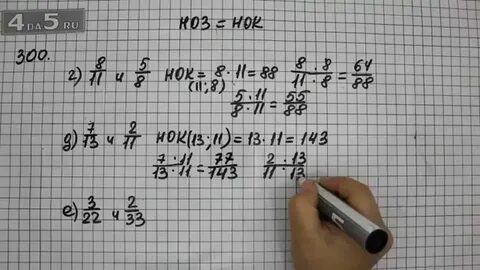 4ДА5.RU
НОЗ = НОК
300.
г) 8/11 и 5/8 НОК(11;8) = 8·11 = 88 8·8/11·8 = 64/88
5·11/8·11 = 55/88
д) 7/13 и 2/11 НОК(13;11) = 13·11 = 143
7·11/13·11 = 77/143 2·13/11·13
е) 3/22 и 2/33